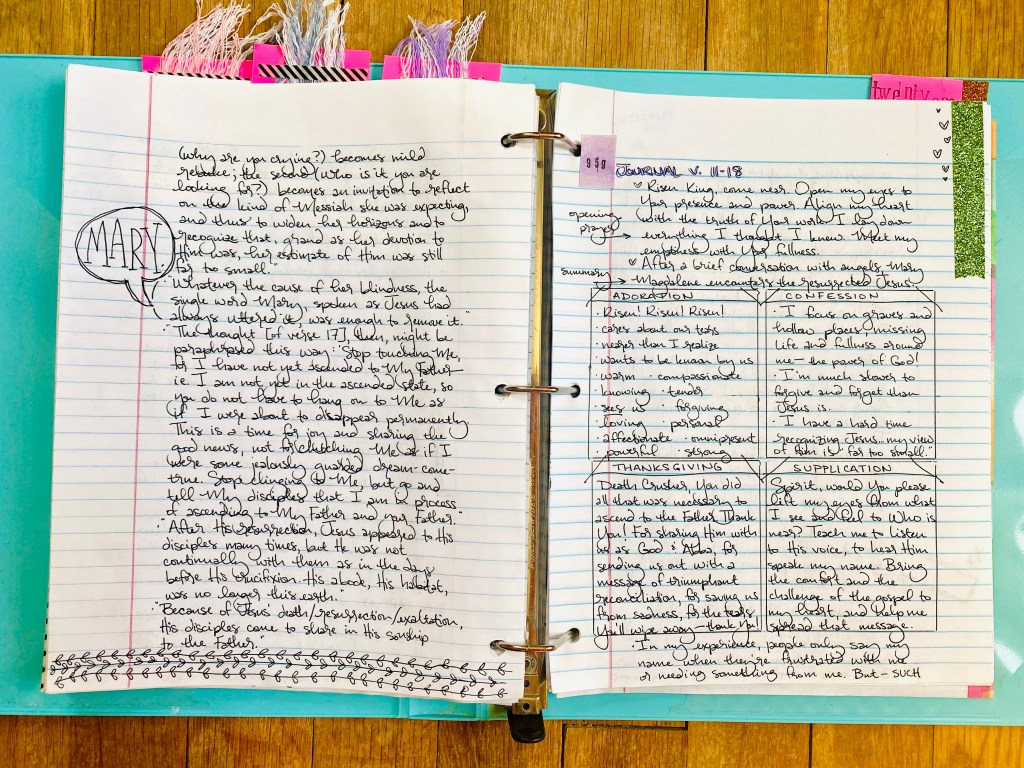 (Why are you crying?) becomes mild
rebuke; the second (Who is it you are
looking for?) becomes an invitation to reflect
on the kind of Messiah she was expecting,
and thus to widen her horizons and to
recognize that, grand as her devotion to
Him was, her estimate of Him was still
far too small."
MARY
"Whatever the cause of her blindness, the
single word Mary, spoken as Jesus had
always uttered it, was enough to remove it."
"The thought [of verse 17], then, might be
paraphrased this way: 'Stop touching Me,
for I have not yet ascended to My Father–
ie. I am not yet in the ascended state, so
you do not have to hang on to Me as
if I were about to disappear permanently
This is a time for joy and sharing the
good news, not for clutching Me as if I
were some jealously guarded dream-come-
true. Stop clinging to Me, but go and
tell My disciples that I am in process
of ascending to My Father and your Father.'"
"After His resurrection, Jesus appeared to His
disciples many times, but He was not
continually with them as in the days
before His crucifixion. His abode, His habitat,
was no longer this earth."
"Because of Jesus' death/resurrection/exaltation,
His disciples come to share in His sonship
to the Father."
twenty
JOURNAL V. 11-18
Risen King, come near. Open my eyes to
Your presence and power. Align my heart
opening
prayer
with the truth of Your word. I lay down
everything I thought I knew. Meet my
emptiness with Your fullness.
summary
After a brief conversation with angels, Mary
Magdalene encounters the resurrected Jesus.
ADORATION
· Risen! Risen! Risen!
· cares about our tears
· nearer than I realize
· wants to be known by us
· warm · compassionate
· knowing · tender
· sees us · forgiving
· loving · personal
· affectionate · omnipresent
· powerful · strong
CONFESSION
· I focus on graves and
hollow places, missing
life and fullness around
me– the power of God!
· I'm much slower to
forgive and forget than
Jesus is.
· I have a hard time
recognizing Jesus. my view
of Him is "far too small."
THANKSGIVING
Death Crusher, You did
all that was necessary to
ascend to the Father. Thank
You! For sharing Him with
us as God & Abba, for
sending us out with a
message of triumphant
reconciliation, for saving us
from sadness, for the tears
You'll wipe away–thank You!
SUPPLICATION
Spirit, would You please
lift my eyes from what
I see and feel to Who is
near? Teach me to listen
to His voice, to hear Him
speak my name. Bring
the comfort and the
challenge of the gospel to
my heart, and help me
spread that message.
· In my experience, people only say my
name when they're frustrated with me
or needing something from me. But – SUCH